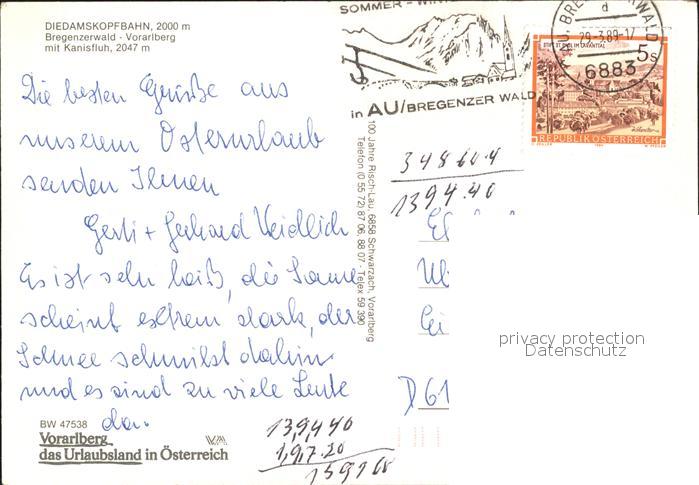 DIEDAMSKOPFBAHN, 2000 m
Bregenzerwald - Vorarlberg
mit Kanisfluh, 2047 m
SOMMER - WIN
in AU/BREGENZER WALD
AU, BREGENZERWALD
d
29-3.89-17
6883
5s
STIFT ST. PAUL IM LAVANTTAL
REPUBLIK ÖSTERREICH
Die besten Grüße aus
unserem Osterurlaub
senden Ihnen
Gerti + Gerhard Weidlich
Es ist sehr heiß, die Sonne
scheint extrem stark, der
Schnee schmilzt dahin
und es sind zu viele Leute
da.
100 Jahre Risch-Lau, 6858 Schwarzach, Vorarlberg
Telefon (0 55 72) 87 06, 88 07 - Telex 59 390
34860.4
1394.40
D 61
privacy protection
Datenschutz
BW 47538
Vorarlberg
das Urlaubsland in Österreich
VA
139440
197.20